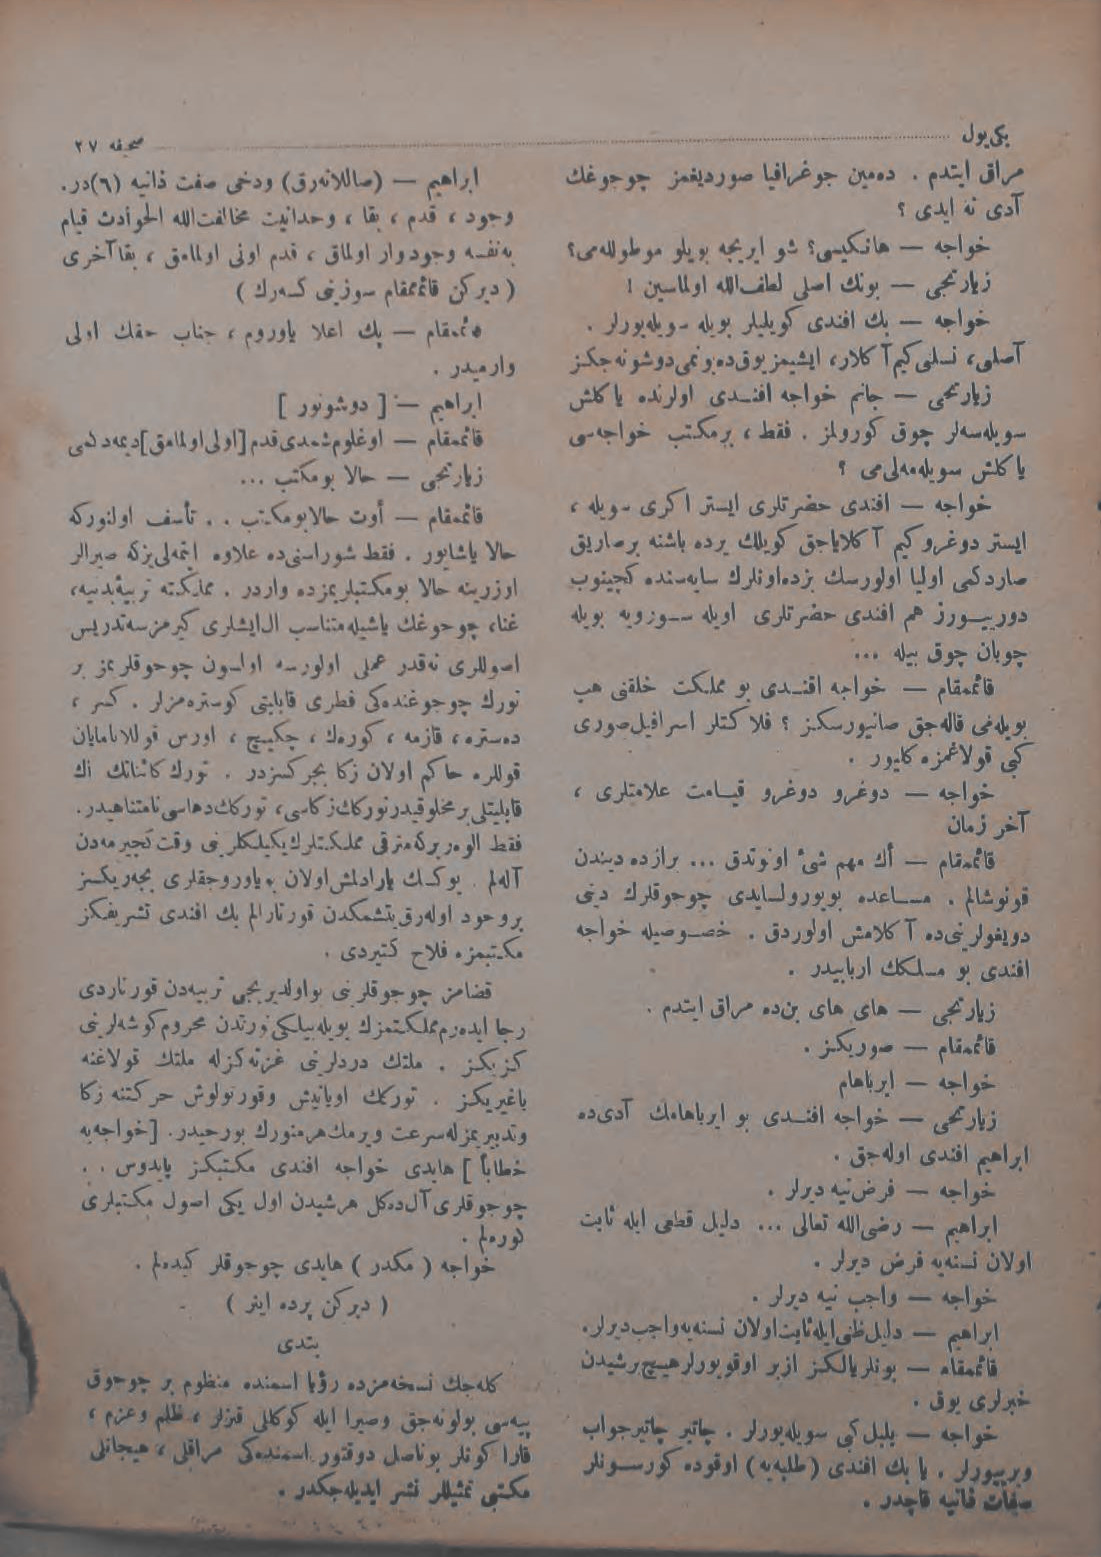 یکی یول
صحیفه ۲۷
مراق ایتدم . دهمین جوغرافیا صوردیغمز چوجوغك
آدی نه ایدی ؟
خواجه — هانکیسی؟ شو ایریجه بویلو موطوللهمی؟
زیارتجی — بونك اصلی لطف‌الله اولماسین !
خواجه — بك افندی کویلیلر بویله سویله‌یورلر .
آصلی، نسلی کیم آکلار، ایشیمز یوق ده بونمی دوشونه‌جکز
زیارتجی — جانم خواجه افنـدی اولرنده یا کلش
سویله‌سه‌لر چوق کورولمز . فقط ، بر مکتب خواجه‌سی
یا کلش سویله‌مه‌لی می ؟
خواجه — افندی حضرتلری ایستر اکری سویله ،
ایستر دوغرو کیم آ کلایاجق کویللك یرده باشنه بر صاریق
صاردکمی اولیا اولورسك بزده اونلرك سایه‌سنده کچینوب
دورییـورز هم افندی حضرتلری اویله سـوزویه بویله
چوبان چوق بیله ...
قائممقام — خواجه افنـدی بو مملکت خلقنی هپ
بویله‌می قاله‌جق صانیورسکز ؟ فلاکتلر اسرافیل صوری
کبی قولاغمزه کلیور .
خواجه — دوغرو دوغرو قیـامت علامتلری ،
آخر زمان
قائممقام — أك مهم شیئ اونوتدق ... برازده دیندن
قونوشالم . مسـاعده بویورولسایدی چوجوقلرك دینی
دویغولرنی‌ده آ کلامش اولوردق . خصـوصیله خواجه
افندی بو مسلکك اربابیدر .
زیارتجی — های های بن‌ده مراق ایتدم .
قائممقام — صوریکز .
خواجه — ایرباهام
زیارتجی — خواجه افنـدی بو ایرباهامك آدی‌ده
ابراهیم افندی اوله‌جق .
خواجه — فرض نیه دیرلر .
ابراهیم — رضی‌الله تعالی ... دلیل قطعی ایله ثابت
اولان نسنه‌یه فرض دیرلر .
خواجه — واجب نیه دیرلر .
ابراهیم — دلیل ظنی ایله ثابت اولان نسنه‌یه واجب دیرلر.
قائممقام — بونلر یالکز ازبر اوقویورلر هیـچ برشیدن
خبرلری یوق .
خواجه — بلبل کبی سویله‌یورلر . چاتیر چاتیر جواب
ویرییورلر . یا بك افندی (طلبه‌یه) اوقوده کورسـونلر
صفات ثانیه قاچدر .
ابراهیم — (صاللانه‌رق) ودخی صفت ذانیه (٦)در.
وجود ، قدم ، بقا ، وحدانیت مخالفت‌الله الحوادث قیام
به‌نفسه وجود وار اولماق ، قدم اونی اولمامق ، بقا آخری
( دیرکن قائممقام سوزینی کسه‌رك )
قائممقام — پك اعلا یاوروم ، جناب حقك اولی
وارمیدر .
ابراهیم — [ دوشونور ]
قائممقام — اوغلوم شمدی قدم [اولی اولمامق] دیمه‌دکمی
زیارتجی — حالا بو مکتب ...
قائممقام — أوت حالا بو مکتب . . تأسف اولنورکه
حالا یاشایور . فقط شوراسنی‌ده علاوه ایتمه‌لی‌یزکه صیرالر
اوزرینه حالا بومکتبلریمزده واردر . مملکته تربیهٔ بدنیه،
غنا، چوجوغك یاشیله متناسب ال ایشلری کیرمزسه تدریس
اصوللری نه‌قدر عملی اولورسه اولسون چوجوقلریمز بر
تورك چوجوغنده‌کی فطری قابلیتی کوستره‌مزلر . کسر ،
دستره ، قازمه ، کورك ، چکیـچ ، اورس قوللانامایان
قوللره حاکم اولان زکا بجرکسزدر . تورك کائناتك اك
قابلیتلی بر مخلوقیدر تورکك زکاسی، تورکك دهاسی نامتناهیدر.
فقط الویررکه مترقی مملکتلرك یکیلکلرینی وقت کچیرمه‌دن
آله‌لم . یوکسك یارادلمش اولان بو یاوروجقلری بجه‌ریکسز
بروجود اوله‌رق یتشمکدن قورتارالم بك افندی تشریفکز
مکتبمزه فلاح کتیردی .
قضامز چوجوقلرینی بو اولدیریجی تربیه‌دن قورتاردی
رجا ایده‌رم مملکتمزك بویله بیلکی نورندن محروم کوشه‌لرینی
کزیکز . ملتك دردلرینی غزته‌کزله ملتك قولاغنه
باغیریکز . تورکك اویانیش وقورتولوش حرکتنه زکا
وتدبیریمزله سرعت ویرمك هرمنورك بورجیدر. [خواجه‌یه
خطاباً ] هایدی خواجه افندی مکتبکز پایدوس . .
چوجوقلری آل ده‌کل هرشیدن اول یکی اصول مکتبلری
کوره‌لم .
خواجه ( مکدر ) هایدی چوجوقلر کیده‌لم .
( دیرکن پرده اینر )
بتدی
کله‌جك نسخه‌مزده رؤیا اسمنده منظوم بر چوجوق
پیه‌سی بولونه‌جق وصیرا ایله کوکللی قیزلر ، ظلم وعزم ،
قارا کونلر بوناصل دوقتور اسمنده‌کی مراقلی ، هیجانلی
مکتبی تمثیللر نشر ایدیله‌جکدر .